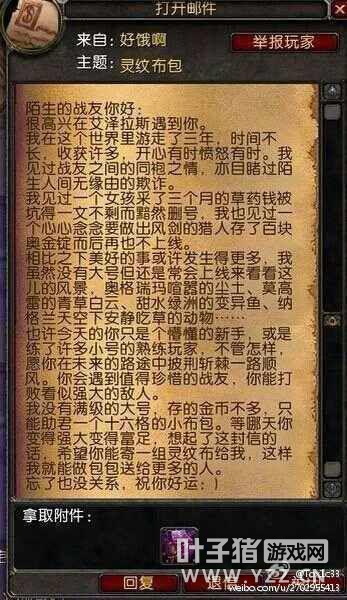 打开邮件
来自: 好饿啊
举报玩家
主题: 灵纹布包
陌生的战友你好:
很高兴在艾泽拉斯遇到你。
我在这个世界里游走了三年，时间不
长，收获许多，开心有时愤怒有时。我
见过战友之间的同袍之情，亦目睹过陌
生人间无缘由的欺诈。
我见过一个女孩采了三个月的草药钱被
坑得一文不剩而黯然删号，我也见过一
个心心念念要做出风剑的猎人存了百块
奥金锭而后再也不上线。
相比之下美好的事或许发生得更多，我
虽然没有大号但还是常会上线来看看这
儿的风景，奥格瑞玛喧嚣的尘土、莫高
雷的青草白云、甜水绿洲的变异鱼、纳
格兰天空下安静吃草的动物……
也许今天的你只是个懵懂的新手，或是
练了许多小号的熟练玩家，不管怎样，
愿你在未来的路途中披荆斩棘一路顺
风。你会遇到值得珍惜的战友，你能打
败看似强大的敌人。
我没有满级的大号，存的金币不多，只
能助君一个十六格的小布包。等哪天你
变得强大变得富足，想起了这封信的
话，希望你能寄一组灵纹布给我，这样
我就能做包包送给更多的人。
忘了也没关系，祝你好运:)
拿取附件:
叶子猪游戏网
www.YZZ.CN
回复
weibo.com/u/2702955413